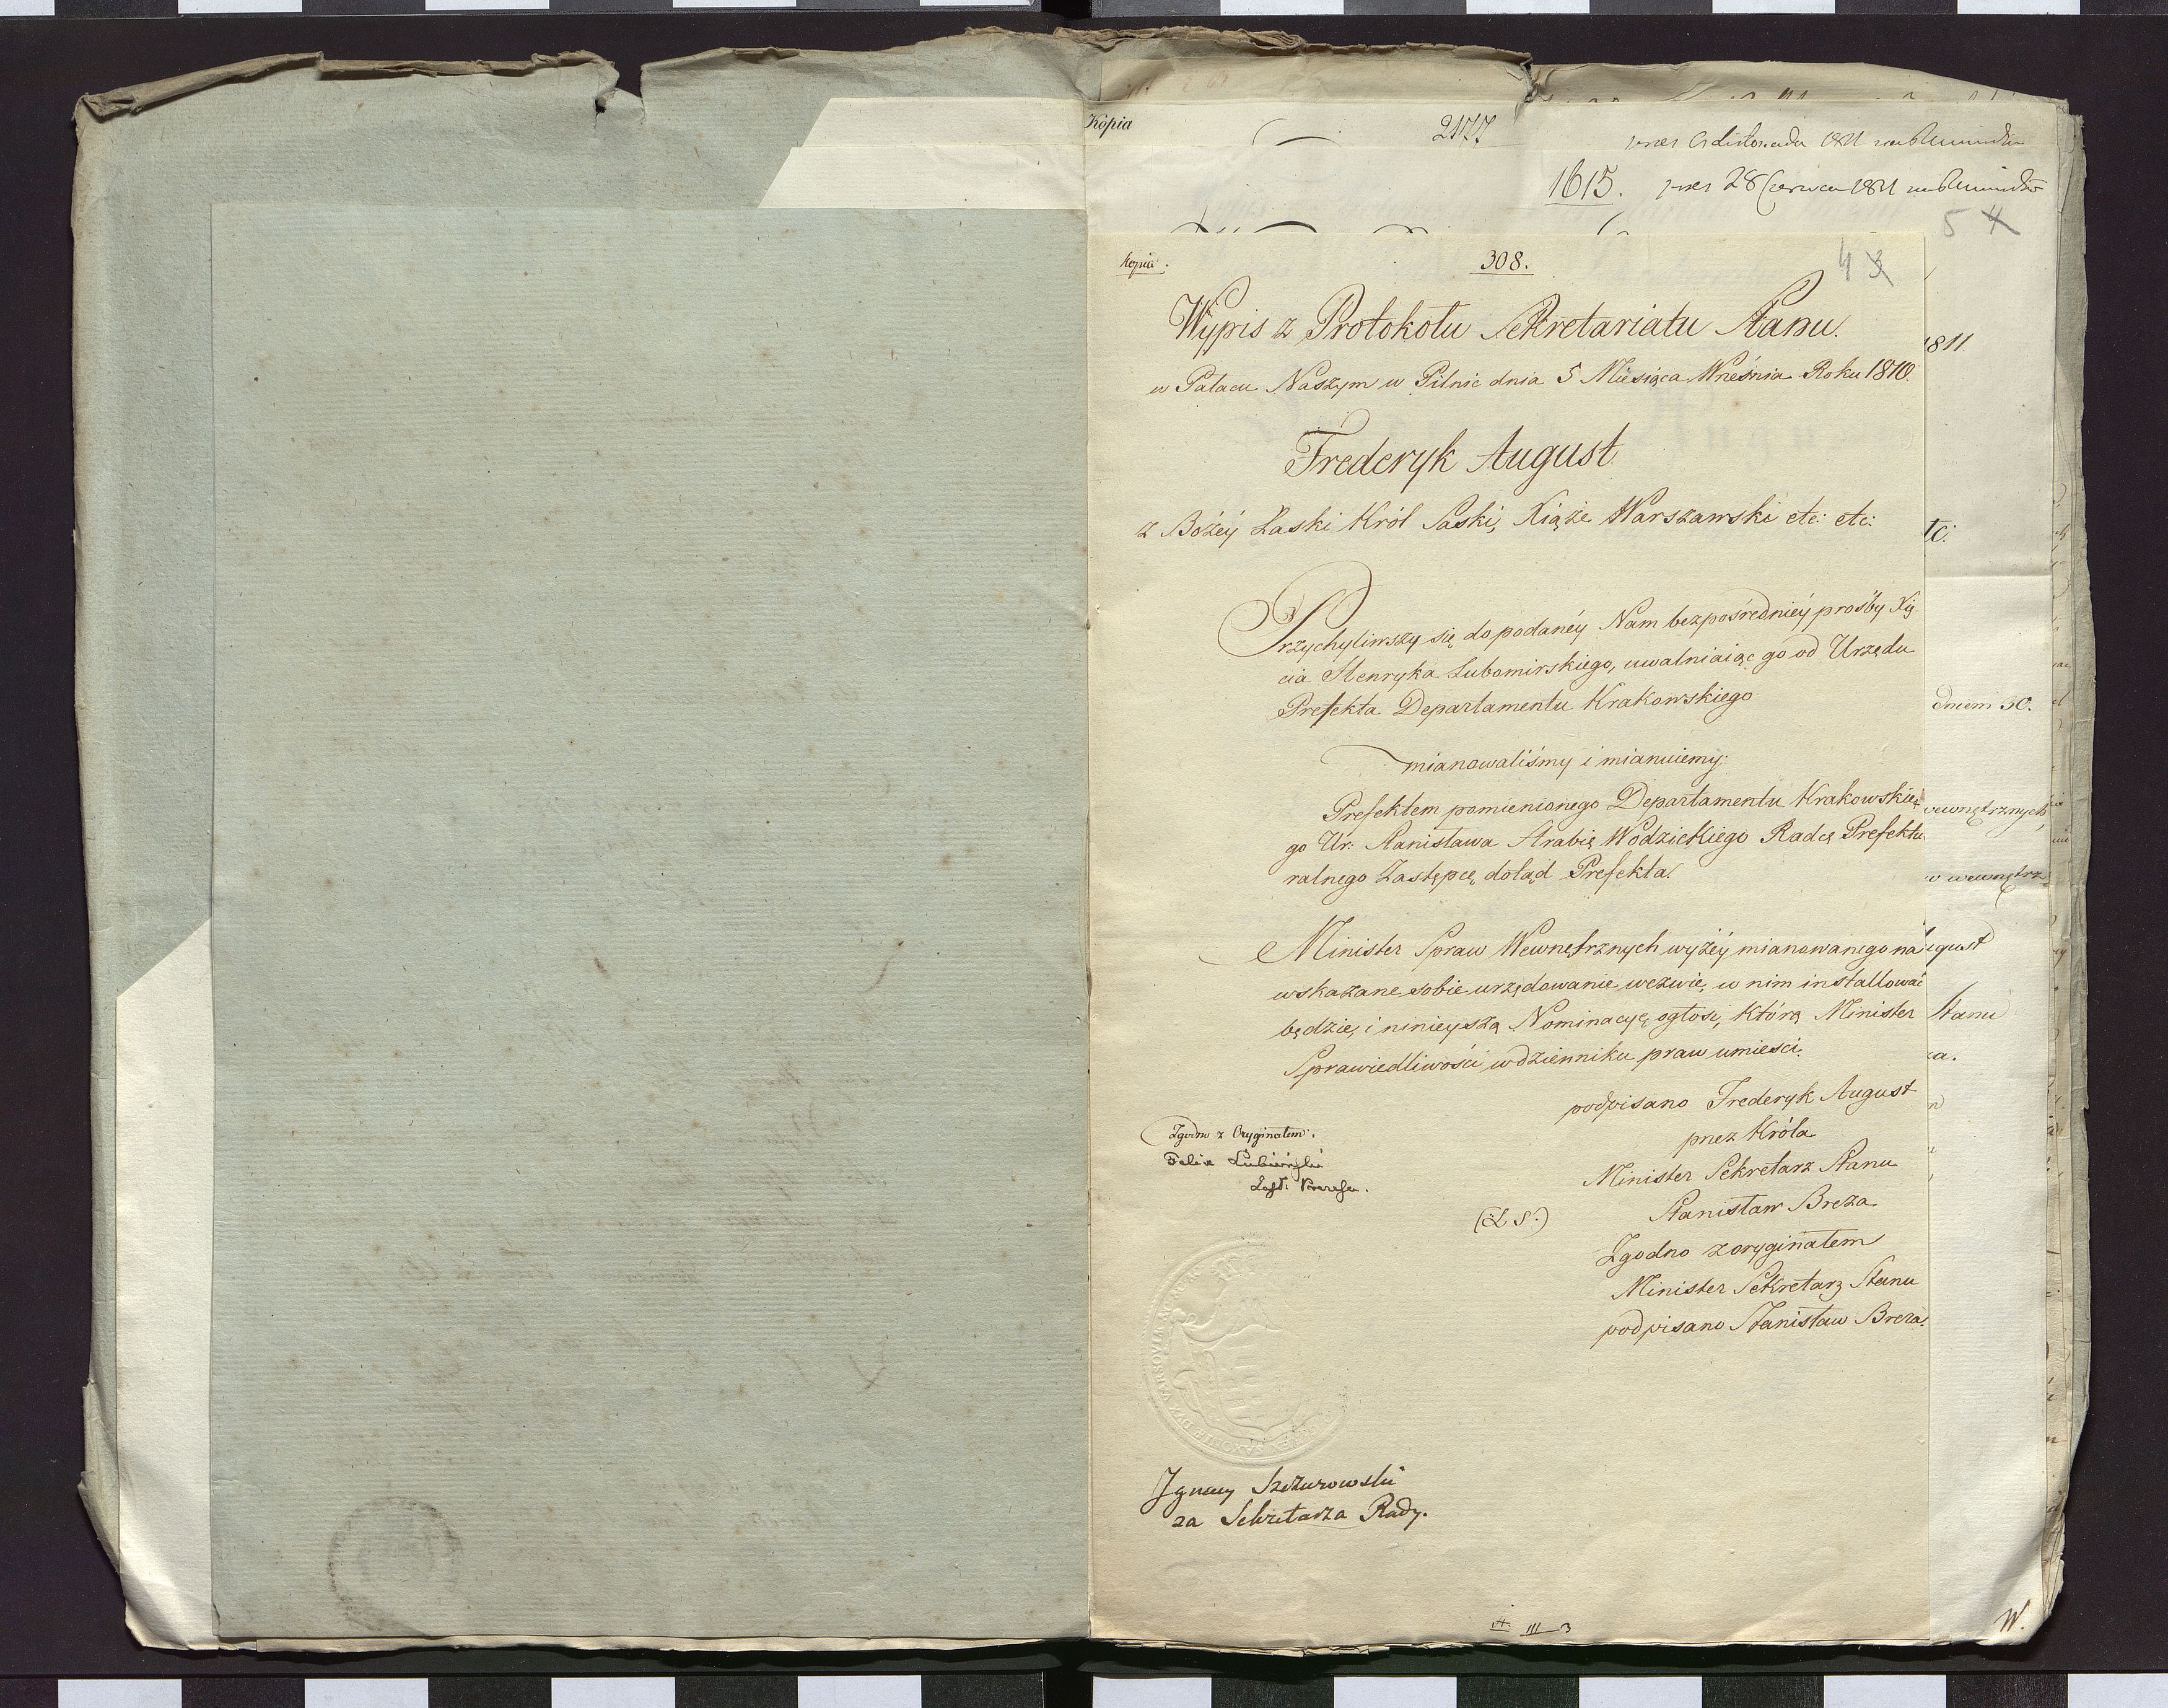 Kopia
2177
1615.
5 4
Kopia.
308.
4 3
Wypis z Protokołu Sekretariatu Stanu.
w Pałacu Naszym w Pilnic dnia 5 Miesiąca Września Roku 1810.
Frederyk August
z Bożey Łaski Król Saski, Xiąże Warszawski etc: etc:
Przychyliwszy się do podanéy Nam bezpośredniéy prośby Xię
cia Henryka Lubomirskiego, uwalniaiąc go od Urzędu
Prefekta Departamentu Krakowskiego
mianowaliśmy i mianuiemy:
Prefektem pomienionego Departamentu Krakowskie
go Ur: Stanisława Hrabię Wodzickiego Radcę Prefektu
ralnego Zastępcę dotąd Prefekta.
Minister Spraw Wewnętrznych wyżéy mianowanego na
wskazane sobie urzędowanie wezwie, w nim installować
będzie, i ninieyszą Nominacyę ogłosi, którą Minister
Sprawiedliwości w dzienniku praw umieści.
podpisano Frederyk August
przez Króla
Minister Sekretarz Stanu
Stanisław Breza
(L. S.)
Zgodno z oryginałem
Minister Sekretarz Stanu
podpisano Stanisław Breza.
Zgodno z Oryginałem.
Felix Łubieński
Ignacy Szczurowski
za Sekretarza Rady.
1811.
tc:
dniem 30.
wewnętrznych,
w wewnętrz
ugust
Stanu
za.
III 3
W.